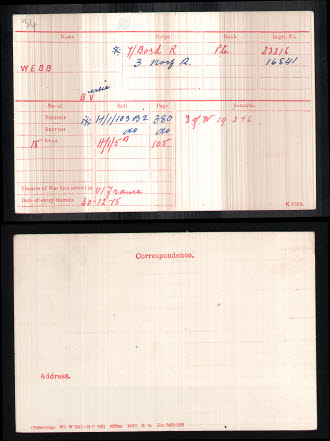 Name Corps Rank Regtl. No.
* 7/Bord R Pte 23216
WEBB 3 Norf R. 16841
B V
Medal. Roll. Page. Remarks.
VICTORY * H/1/103 B2 380 D of W 19.2.16
BRITISH do do
15 STAR H/1/5B 105
Theatre of War first served in (1) France
Date of entry therein 30-12-15
K. 1380.
Correspondence.
Address.